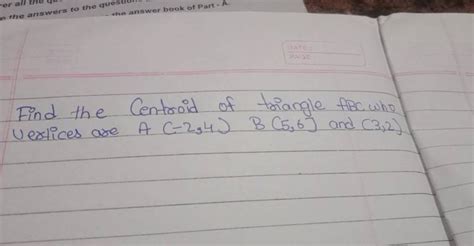 er all the qu
n the answers to the question
the answer book of Part - A.
DATE
PAGE
Find the Centroid of triangle ABC who
vertices are A (-2,4) B (5,6) and (3,2)